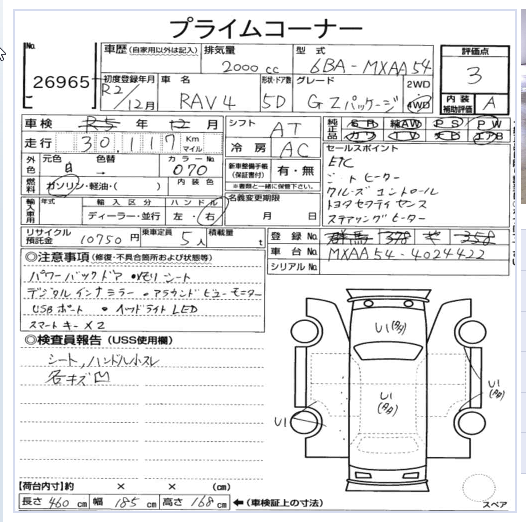 プライムコーナー
No.
26965
車歴 (自家用以外は記入)
排気量
2000 cc
型式
6BA-MXAA54
評価点
3
初度登録年月
R2/12月
車名
RAV4
形状・ドア数
5D
グレード
G Zパッケージ
2WD
4WD
内装
補助評価
A
車検 R5年 12月
シフト
AT
純正品
走行
30,117 Km
マイル
冷房
AC
セールスポイント
ETC
シートヒーター
クルーズコントロール
トヨタセフティセンス
ステアリングヒーター
外色
元色
色替
カラーNo.
070
新車整備手帳
(保証書付)
有・無
※書類と一緒に保管下さい。
燃料
ガソリン・軽油・( )
内装色
輸入車用
年式
輸入区分
ディーラー・並行
ハンドル
左・右
名義変更期限
月 日
リサイクル
預託金
10750円
乗車定員
5人
積載量
t
登録No.
車台No.
MXAA54-4024422
シリアルNo.
◎注意事項(修復・不具合箇所および状態等)
パワーバックドア ・メモリーシート
デジタルインナーミラー ・アラウンドビューモニター
USBポート ・ヘッドライトLED
スマートキーX2
◎検査員報告(USS使用欄)
シート,ハンドル小スレ
各キズ凹
U1
U1
U1
U1
【荷台内寸】約 × × (cm)
長さ 460 cm 幅 185 cm 高さ 168 cm ←(車検証上の寸法)
スペア